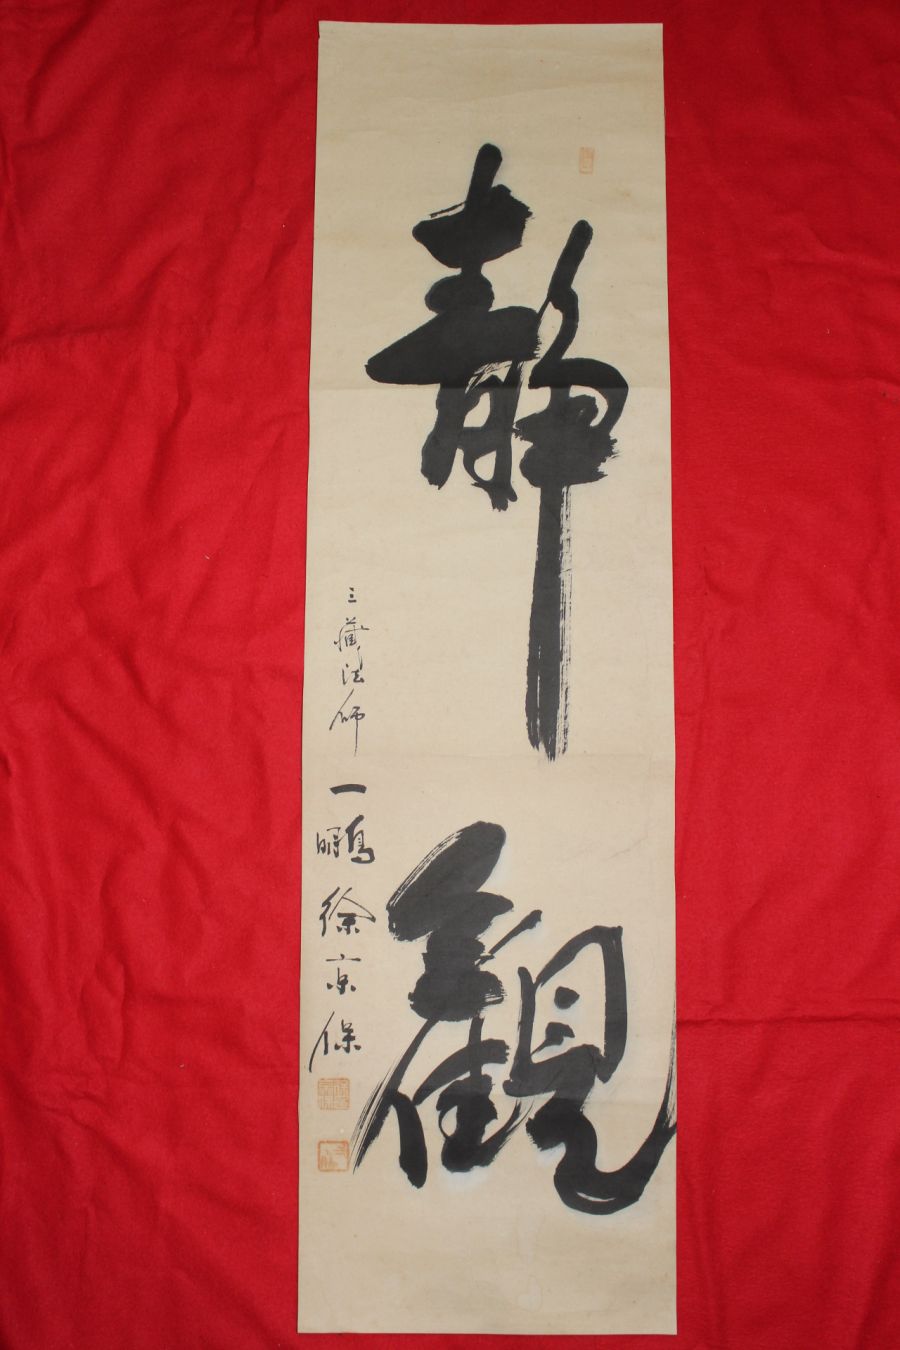 靜觀
三藏法師 一鵬 徐京保